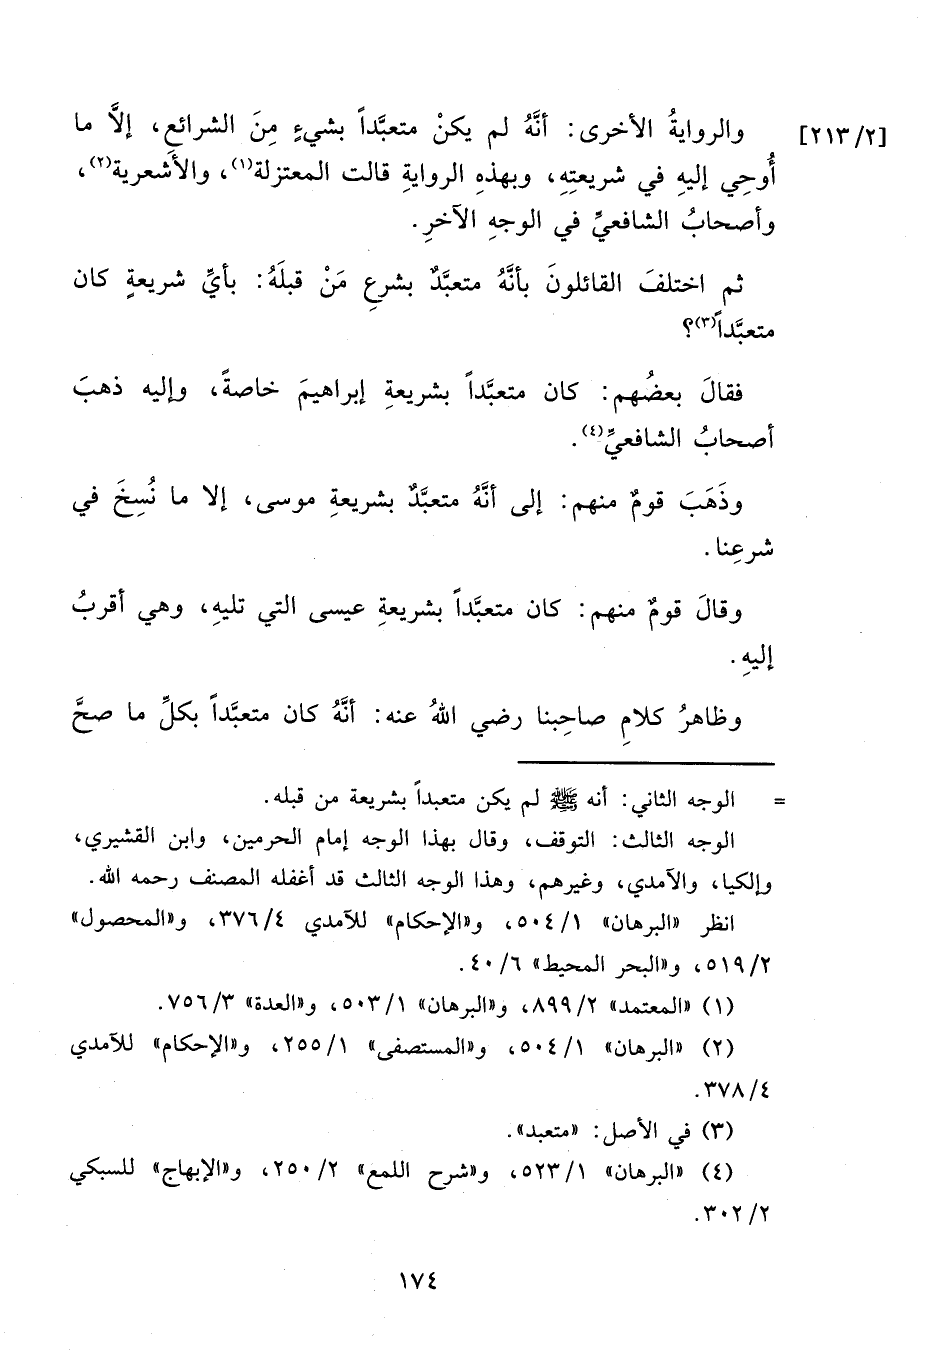 [٢١٣/٢] والروايةُ الأخرى: أنَّهُ لم يكنْ متعبَّداً بشيءٍ مِنَ الشرائعِ، إلاَّ ما
أُوحِي إليهِ في شريعتِهِ، وبهذهِ الروايةِ قالت المعتزلة(١)، والأشعرية(٢)،
وأصحابُ الشافعيِّ في الوجهِ الآخرِ.
ثم اختلفَ القائلونَ بأنَّهُ متعبَّدٌ بشرعِ مَنْ قبلَهُ: بأيِّ شريعةٍ كان
متعبَّداً(٣)؟
فقالَ بعضُهم: كان متعبَّداً بشريعةِ إبراهيمَ خاصةً، وإليه ذهبَ
أصحابُ الشافعيِّ(٤).
وذَهَبَ قومٌ منهم: إلى أنَّهُ متعبَّدٌ بشريعةِ موسى، إلا ما نُسِخَ في
شرعِنا.
وقالَ قومٌ منهم: كان متعبَّداً بشريعةِ عيسى التي تليهِ، وهي أقربُ
إليهِ.
وظاهرُ كلامِ صاحِبنا رضي اللهُ عنه: أنَّهُ كان متعبَّداً بكلِّ ما صحَّ
= الوجه الثاني: أنه ﷺ لم يكن متعبداً بشريعة من قبله.
الوجه الثالث: التوقف، وقال بهذا الوجه إمام الحرمين، وابن القشيري،
وإلكيا، والآمدي، وغيرهم، وهذا الوجه الثالث قد أغفله المصنف رحمه الله.
انظر «البرهان» ٥٠٤/١، و«الإحكام» للآمدي ٣٧٦/٤، و«المحصول»
٥١٩/٢، و«البحر المحيط» ٤٠/٦.
(١) «المعتمد» ٨٩٩/٢، و«البرهان» ٥٠٣/١، و«العدة» ٧٥٦/٣.
(٢) «البرهان» ٥٠٤/١، و«المستصفى» ٢٥٥/١، و«الإحكام» للآمدي
٣٧٨/٤.
(٣) في الأصل: «متعبد».
(٤) «البرهان» ٥٢٣/١، و«شرح اللمع» ٢٥٠/٢، و«الإبهاج» للسبكي
٣٠٢/٢.
١٧٤